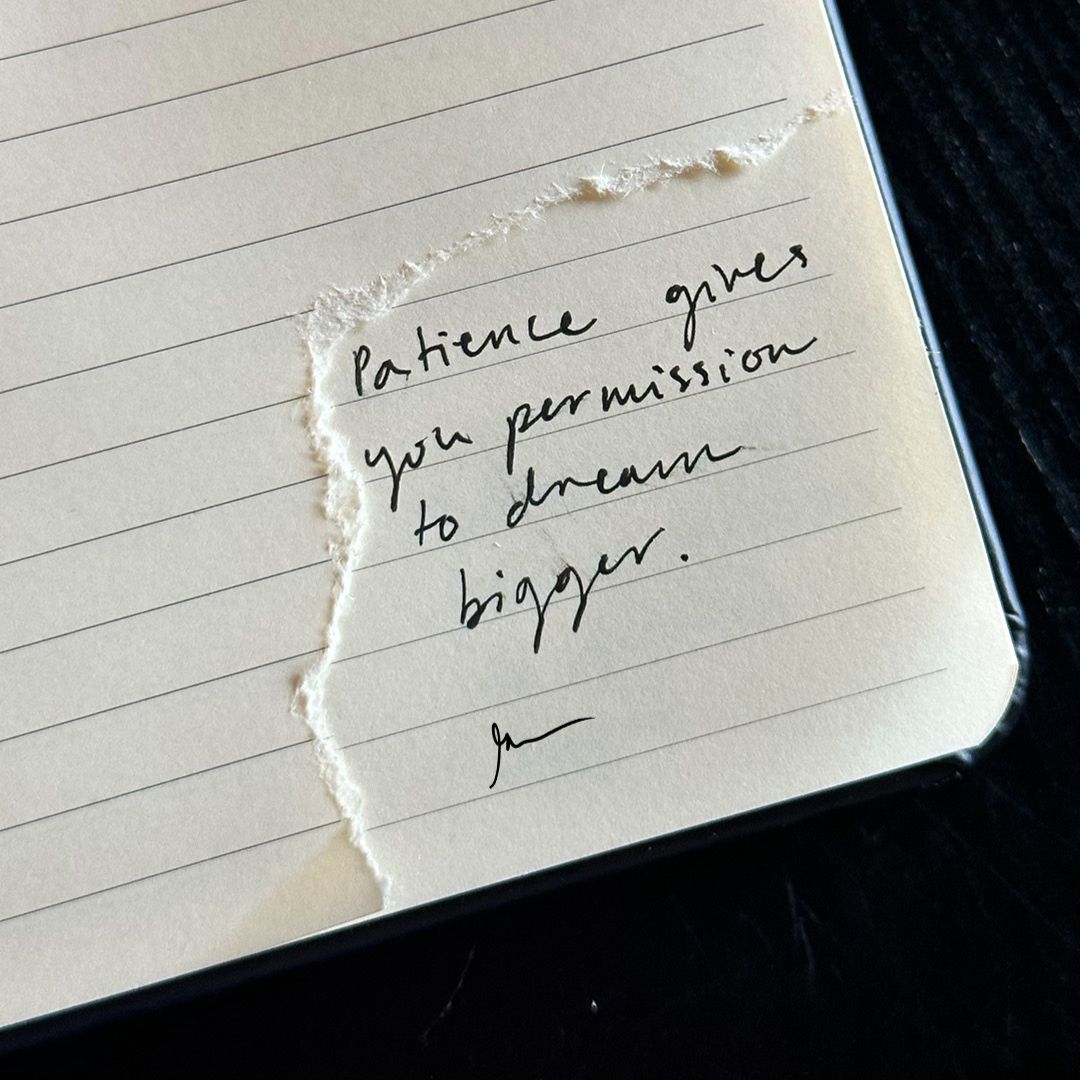 Patience gives
you permission
to dream
bigger.